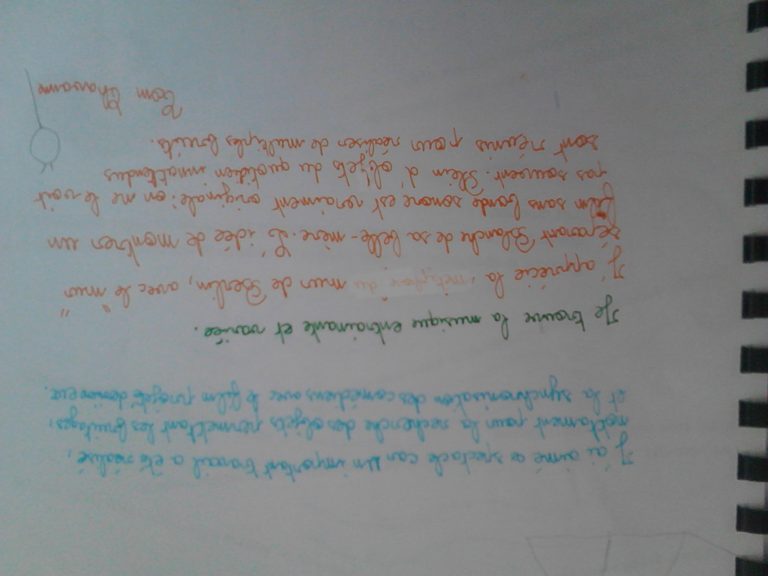 J'ai aimé ce spectacle car un important travail a été réalisé,
notamment pour la recherche des objets permettant les bruitages,
et la synchronisation des comédiens avec le film projeté derrière eux.
Je trouve la musique entrainante et variée.
J'apprécie la métaphore du mur de Berlin, avec le "mur"
séparant Blanche de sa belle-mère. L'idée de montrer un
film sans bande sonore est vraiment originale : on ne le voit
pas souvent. Plein d'objets du quotidien innatendus
sont réunis pour réaliser de multiples bruits.
Tom